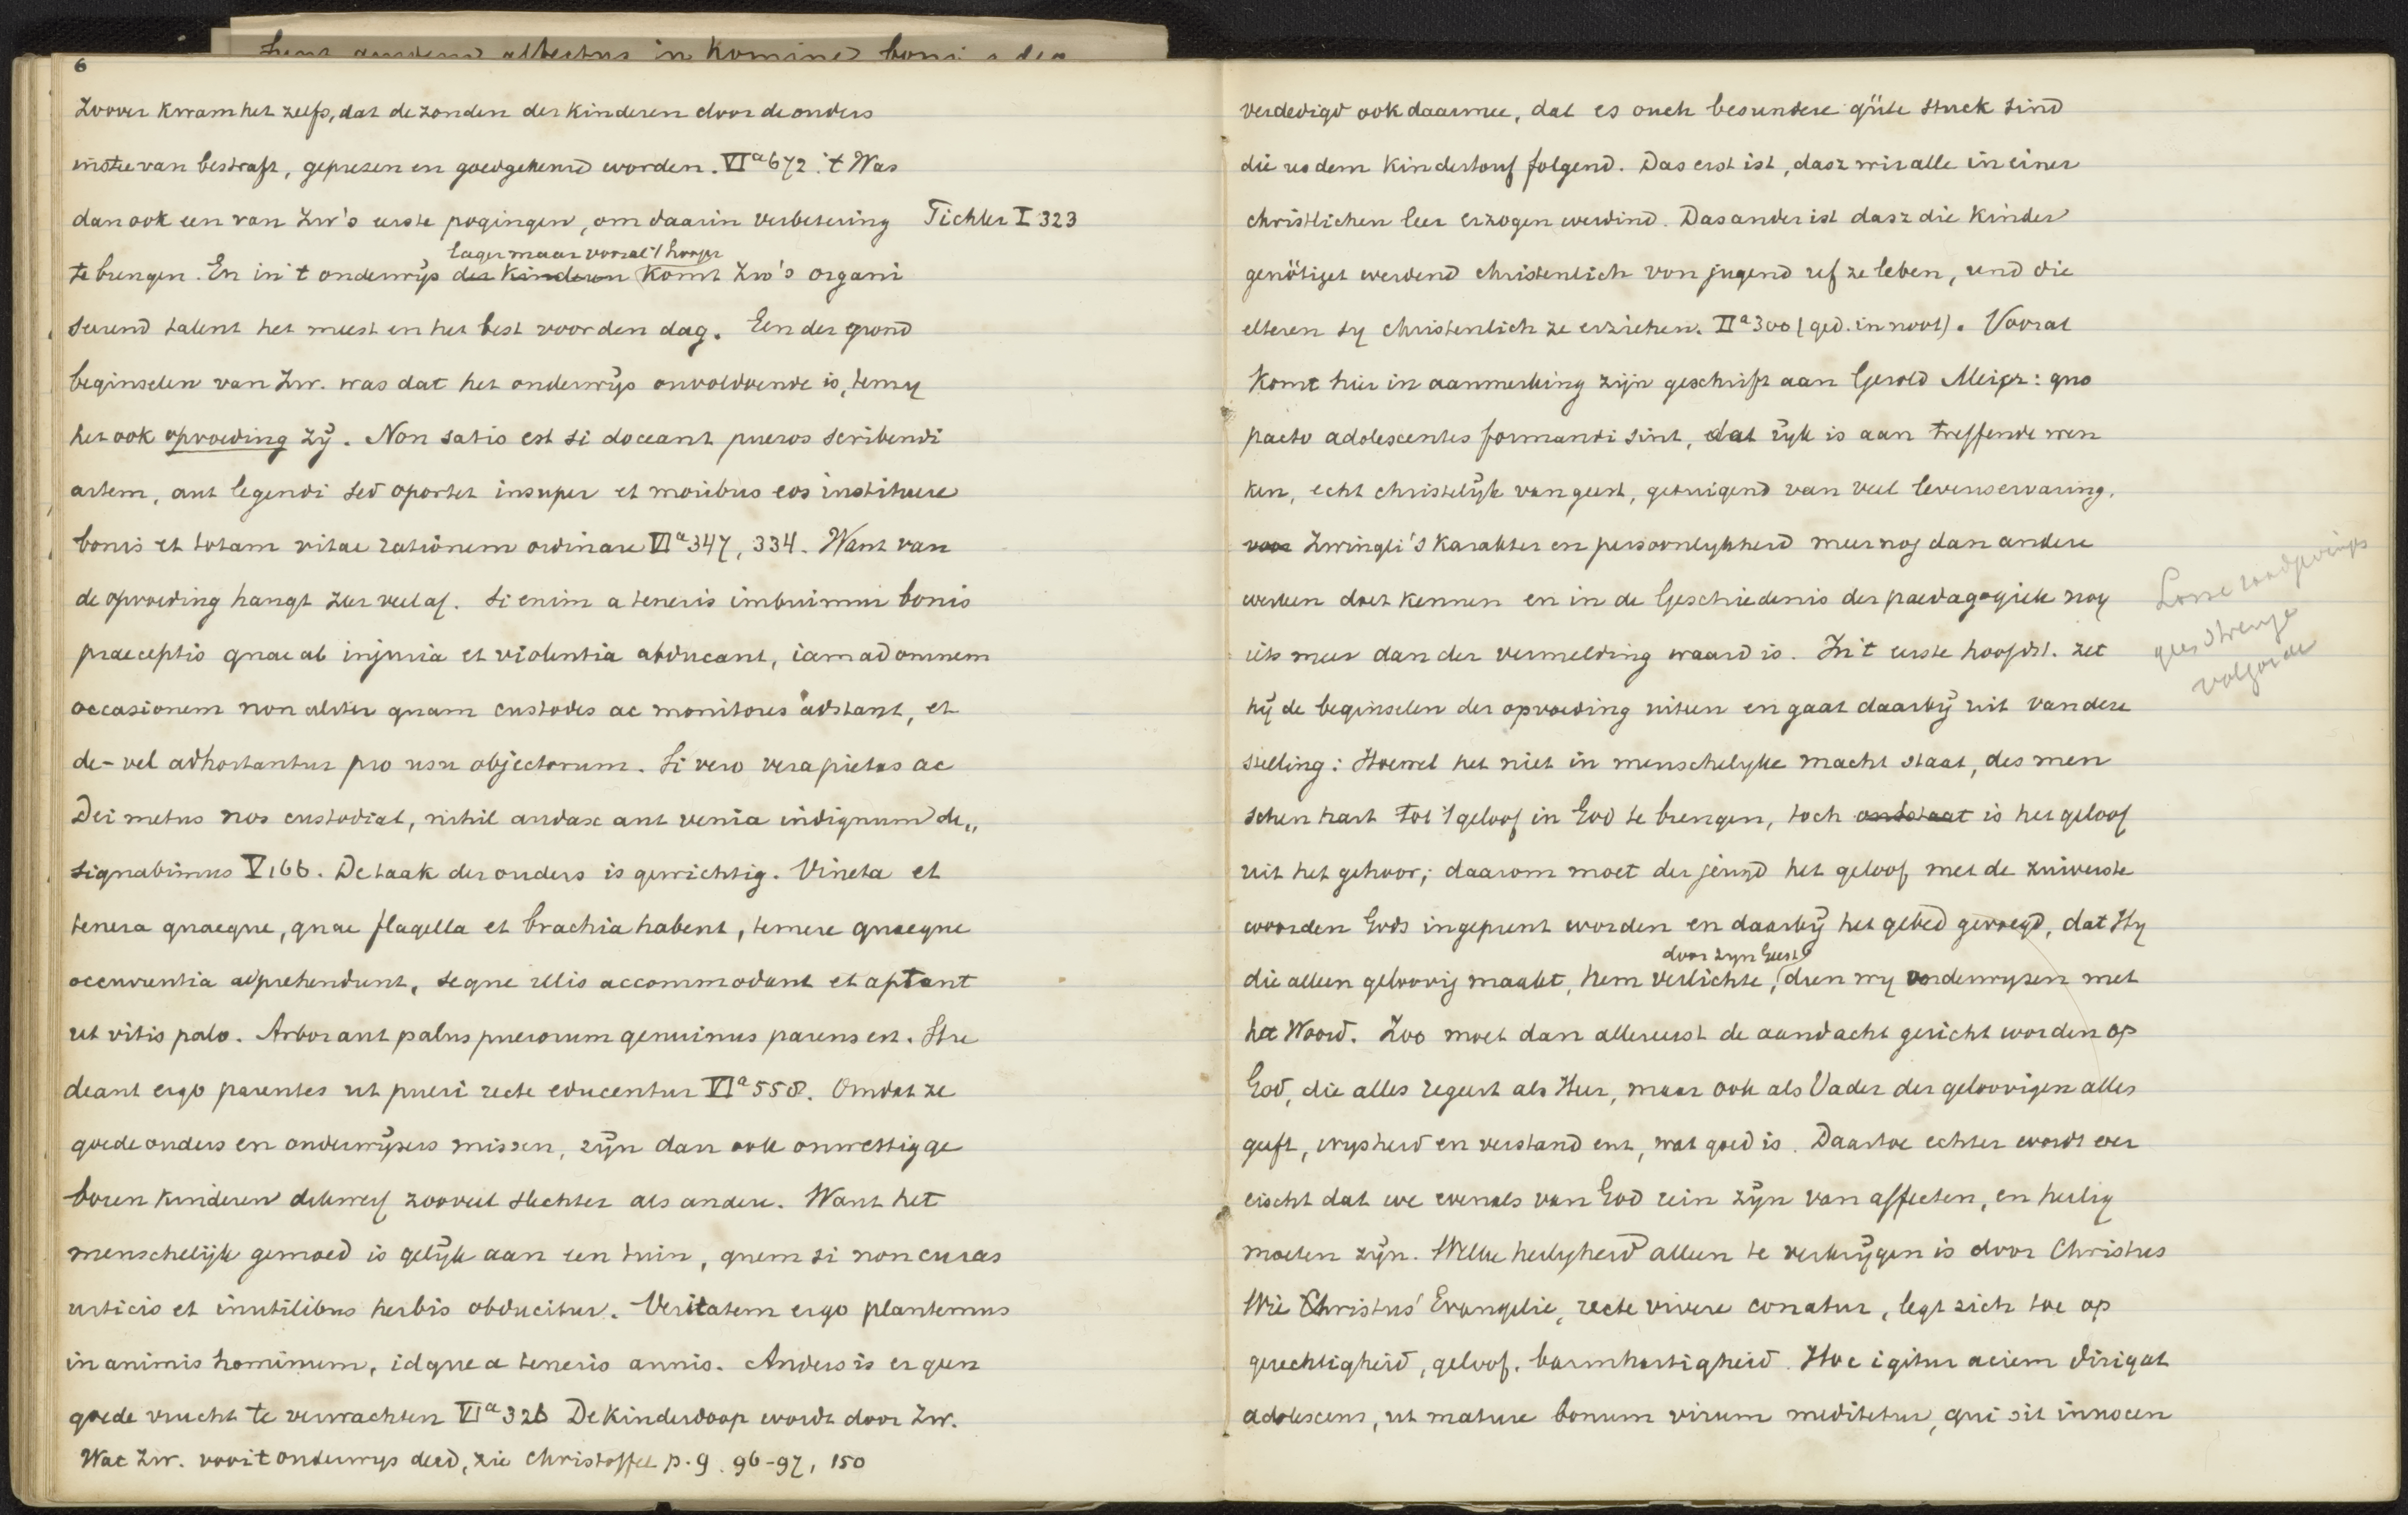 6
Zoover kwam het zelfs, dat de zonden der kinderen door de ouders
instee van bestraft, geprezen en goedgekeurd worden. VIa 672. 't Was
dan ook een van Zw's eerste pogingen, om daarin verbetering Tichler I 323
lager maar vooral 't hooger
te brengen. En in 't onderwijs der kinderen komt Zw's organi
seerend talent het meest en het best voor den dag. Een der grond
beginselen van Zw. was dat het onderwijs onvoldoende is, tenzy
het ook opvoeding zij. Non satis est si doceant pueros scribendi
artem, aut legendi sed oportet insuper et moribus eos instituere
bonis et totam vitae rationem ordinare VIa 347, 334. Want van
de opvoeding hangt zeer veel af. Si enim a teneris imbuimur bonis
praeceptis quae ab injuria et violentia abducant, iam ad omnem
occasionem non aliter quam custodes ac monitores adstant, et
de- vel adhortantur pro usu objectorum. Si vero vera pietas ac
Dei metus nos custodiat, nihil audax aut venia indignum de„
signabimus V 166. De taak der ouders is gewichtig. Vineta et
tenera quaeque, quae flagella et brachia habent, temere quaeque
occurrentia apprehendunt, seque illis accommodant et aptant
ut vitis palo. Arbor aut palus puerorum genuinus parens est. Stu
deant ergo parentes ut pueri recte educentur VIa 558. Omdat ze
goede ouders en onderwijzers missen, zijn dan ook onwettig ge
boren kinderen dikwerf zooveel slechter als andere. Want het
menschelijk gemoed is gelijk aan een tuin, quem si non curas
urticis et inutilibus herbis obducitur. Veritatem ergo plantemus
in animis hominum, idque a teneris annis. Anders is er geen
goede vrucht te verwachten VIa 326 De kinderdoop wordt door Zw.
Wat Zw. voor 't onderwys deed, zie Christoffel p. 9. 96-97, 150
verdedigd ook daarmee, dat es ouch besundere güte stuck sind
die us dem kindertouf folgend. Das erst ist, dasz wir alle in einer
christlichen leer erzogen werdind. Das ander ist dasz die kinder
genötiget werdend christenlich von jugend uf ze leben, und die
elteren sy christenlich ze erziehen. IIa 300 (ged. in noot). Vooral
komt hier in aanmerking zijn geschrift aan Gerold Meijer: quo
pacto adolescentes formandi sint, dat rijk is aan treffende wen
ken, echt christelijk van geest, getuigend van veel levenservaring,
voor Zwingli's karakter en persoonlykheid meer nog dan andere
werken doet kennen en in de Geschiedenis der paedagogiek nog
iets meer dan der vermelding waard is. In 't eerste hoofdst. zet
hij de beginselen der opvoeding uiteen en gaat daarbij uit van deze
stelling: Hoewel het niet in menschelyke macht staat, des men
schen hart tot 't geloof in God te brengen, toch ontstaat is het geloof
uit het gehoor; daarom moet der jeugd het geloof met de zuiverste
woorden Gods ingeprent worden en daarbij het gebed gevoegd, dat Hy
door zyn Geest
die alleen geloovig maakt, hem verlichte, dien wy onderwyzen met
het Woord. Zoo moet dan allereerst de aandacht gericht worden op
God, die alles regeert als Heer, maar ook als Vader der geloovigen alles
geeft, wysheid en verstand enz, wat goed is. Daartoe echter wordt ver
eischt dat we evenals van God rein zijn van affecten, en heilig
moeten zijn. Welke heilygheid alleen te verkrijgen is door Christus
Wie Christus' Evangelie, recte vivere conatur, legt zich toe op
gerechtigheid, geloof, barmhartigheid. Huc igitur aciem dirigat
adolescens, ut mature bonum virum meditetur, qui sit innocen
Losse raadgevings
geen strenge
volgorde